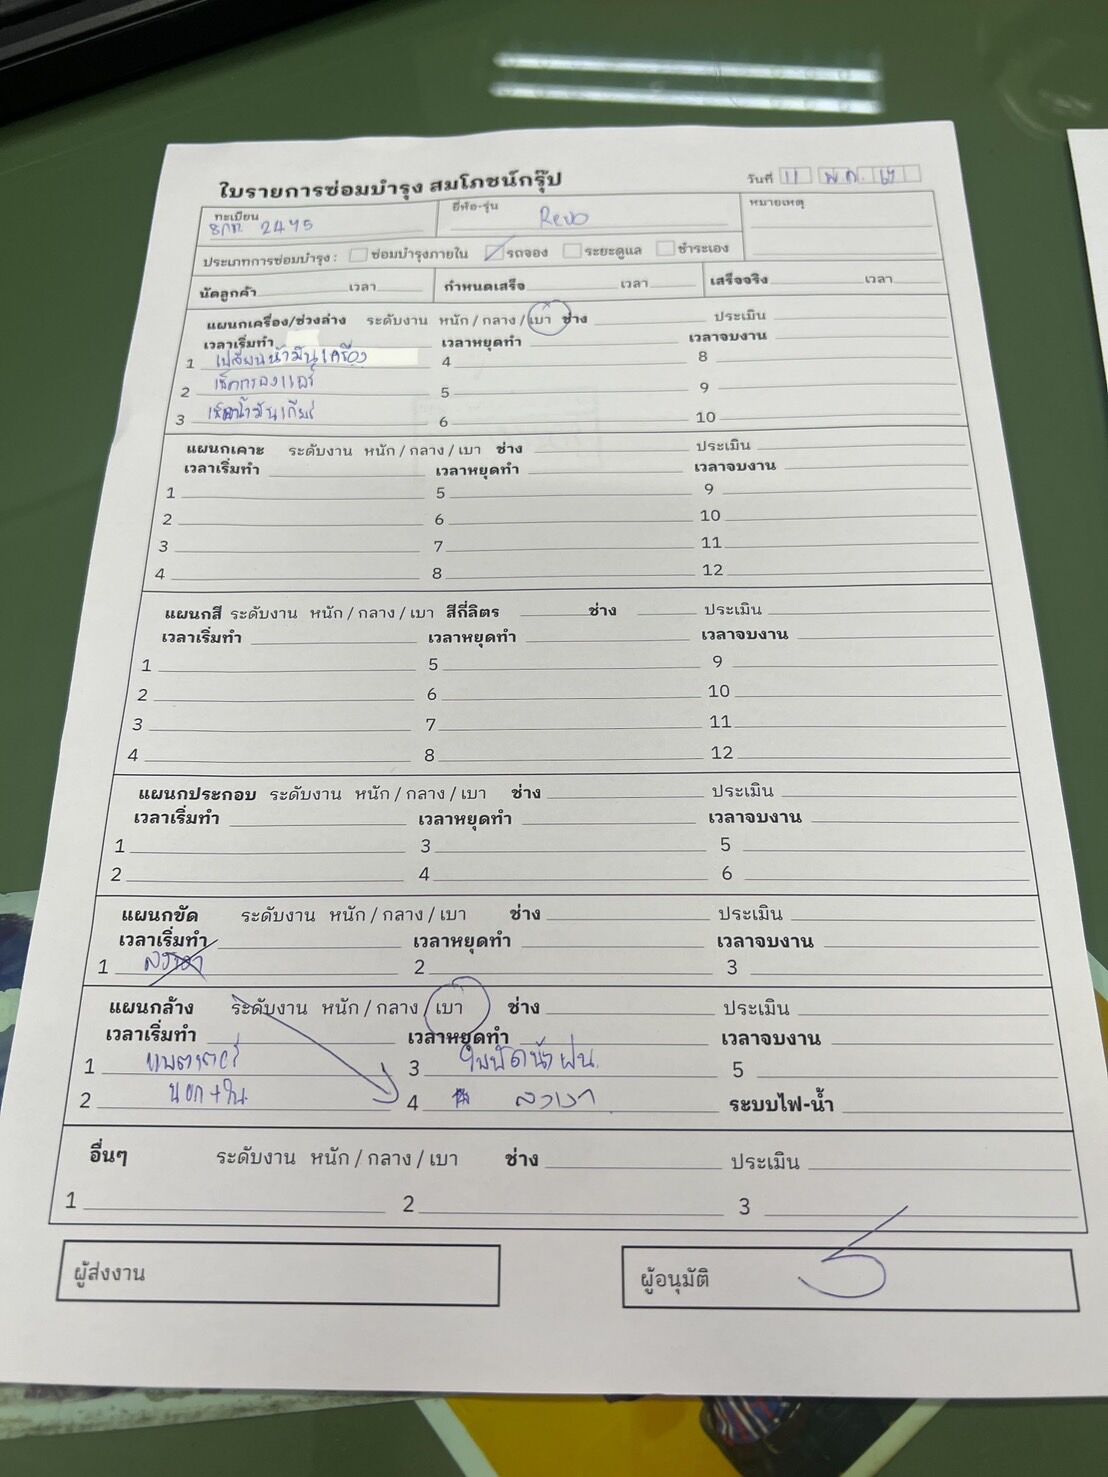 ใบรายการซ่อมบำรุง สมโภชน์กรุ๊ป
วันที่ 11 พ.ค.
ทะเบียน 2495
ยี่ห้อ-รุ่น Revo
หมายเหตุ
ประเภทการซ่อมบำรุง : ซ่อมบำรุงภายใน รถจอง ระยะดูแล ชำระเอง
นัดลูกค้า เวลา กำหนดเสร็จ เวลา เสร็จจริง เวลา
แผนกเครื่อง/ช่วงล่าง ระดับงาน หนัก / กลาง / เบา ช่าง ประเมิน
เวลาเริ่มทำ เวลาหยุดทำ เวลาจบงาน
1 เปลี่ยนน้ำมันเครื่อง 4 8
2 เช็คกรองแอร์ 5 9
3 เช็คน้ำมันเกียร์ 6 10
แผนกเคาะ ระดับงาน หนัก / กลาง / เบา ช่าง ประเมิน
เวลาเริ่มทำ เวลาหยุดทำ เวลาจบงาน
1 5 9
2 6 10
3 7 11
4 8 12
แผนกสี ระดับงาน หนัก / กลาง / เบา สีกี่ลิตร ช่าง ประเมิน
เวลาเริ่มทำ เวลาหยุดทำ เวลาจบงาน
1 5 9
2 6 10
3 7 11
4 8 12
แผนกประกอบ ระดับงาน หนัก / กลาง / เบา ช่าง ประเมิน
เวลาเริ่มทำ เวลาหยุดทำ เวลาจบงาน
1 3 5
2 4 6
แผนกขัด ระดับงาน หนัก / กลาง / เบา ช่าง ประเมิน
เวลาเริ่มทำ เวลาหยุดทำ เวลาจบงาน
1 2 3
แผนกล้าง ระดับงาน หนัก / กลาง / เบา ช่าง ประเมิน
เวลาเริ่มทำ เวลาหยุดทำ เวลาจบงาน
1 แบตเตอรี่ 3 ใบปัดน้ำฝน 5
2 นอก+ใน 4 ลงเงา ระบบไฟ-น้ำ
อื่นๆ ระดับงาน หนัก / กลาง / เบา ช่าง ประเมิน
1 2 3
ผู้ส่งงาน
ผู้อนุมัติ